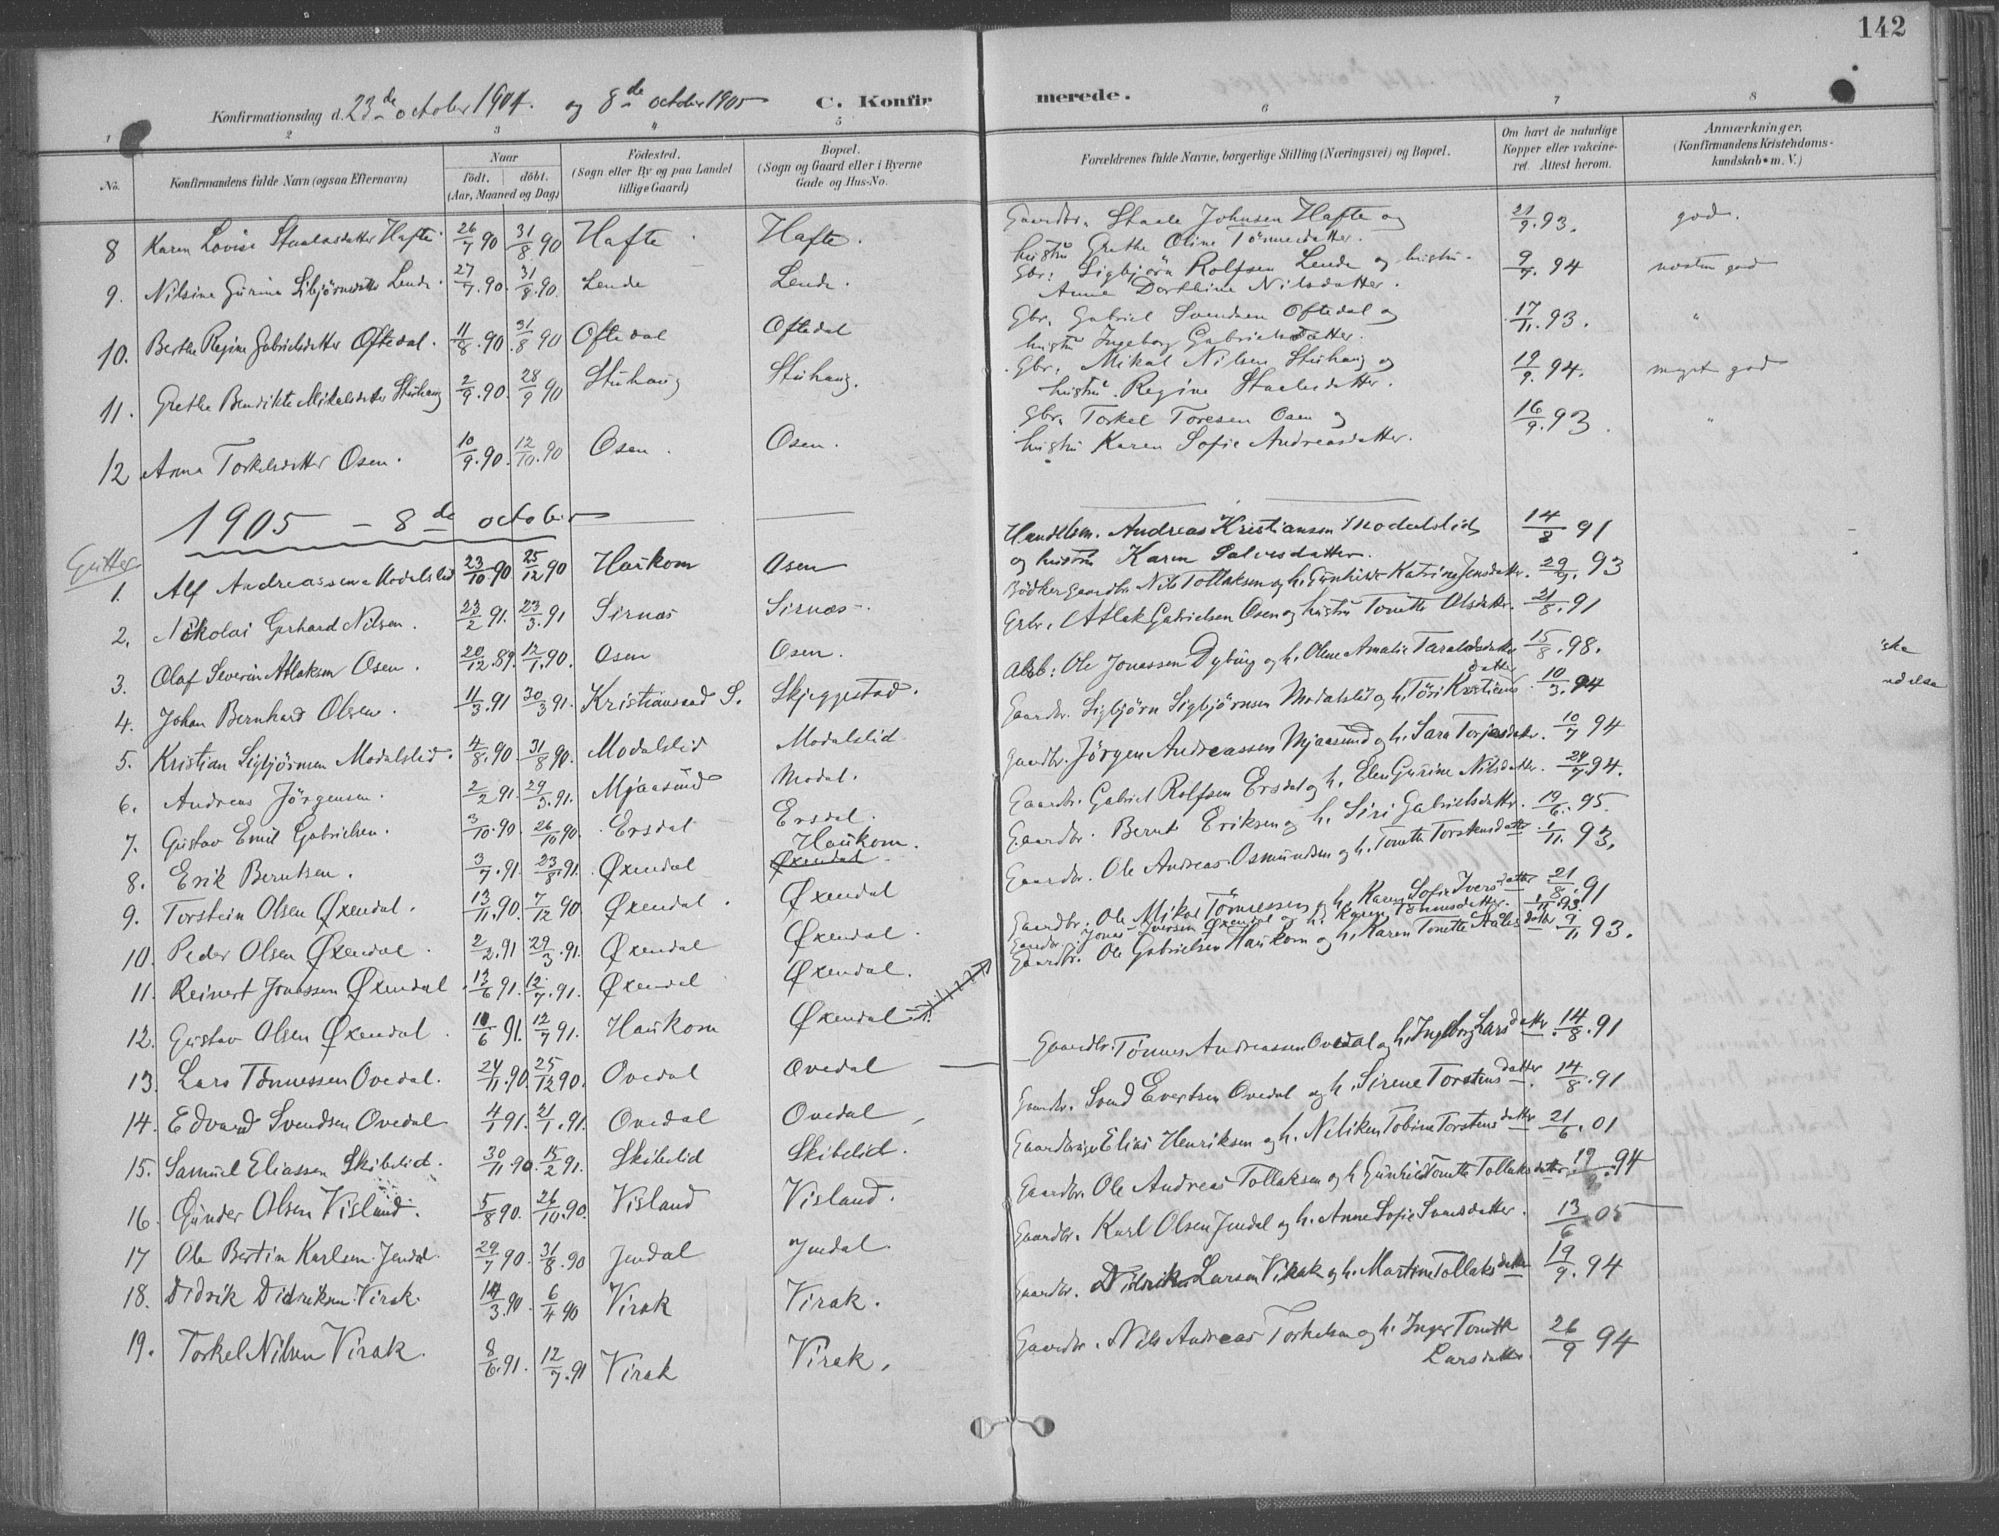 142
Konfirmationsdag d. 23de october 1904. og 8de october 1905 C. Konfirmerede.
1 2 3 4 5 6 7 8
No. Konfirmandens fulde Navn (ogsaa Efternavn) Naar födt. döbt. (Aar, Maaned og Dag) Födested. (Sogn eller By og paa Landet tillige Gaard) Bopæl. (Sogn og Gaard eller i Byerne Gade og Hus-No. Forældrenes fulde Navne, borgerlige Stilling (Næringsvei) og Bopæl. Om havt de naturlige Kopper eller vakcineret. Attest herom. Anmærkninger. (Konfirmandens Kristendomskundskab m. V.)
8 Karen Lovise Staalesdatter Hafte 26/7 90 31/8 90 Hafte Hafte. Gaardbr. Staale Johnsen Hafte og hustru Grethe Oline Tönnesdatter. 21/9.93. god.
9. Nilsine Gurine Sibjörnsdatter Lende. 27/7.90. 31/8.90. Lende Lende. Gbr: Sigbjörn Rolfsen Lende og hustru Anne Dorthine Nilsdatter. 9/7.94 nesten god
10. Berthe Regine Gabrielsdatter Oftedal. 11/8.90. 31/8 90 Oftedal Oftedal Gbr. Gabriel Svendsen Oftedal og hustru Ingeborg Gabrielsdatter. 17/11.93. "
11. Grethe Bendikte Mikalsdatter Stuhaug 2/9.90. 28/9 90 Stuhaug Stuhaug. Gbr. Mikal Nilsen Stuhaug og hustru Regine Staalesdatter. 19/9.94. meget god
12 Anna Torkelsdatter Osen. 10/9.90. 12/10.90 Osen. Osen. Gbr. Torkel Toresen Osen og hustru Karen Sofie Andreasdatter. 16/9.93. "
1905 - 8de october
Gutter
1. Alf Andreassen Modalslid 23/10 90 25/12 90 Haukom Osen Handelsm. Andreas Kristiansen Modalslid og hustru Karen Salvesdatter. 14/8 91
2. Nikolai Gerhard Nilsen. 23/2 91. 23/3.91 Sirnæs Sirnæs. Bödker Gaardbr. Nils Tollaksen og h. Gunhild Katrine Jensdatter. 29/9.93
3. Olaf Severin Atlaksen Osen. 20/12.89. 12/1.90. Osen Osen. Grbr. Atlak Gabrielsen Osen og hustru Tonette Olsdatter. 21/8.91
4. Johan Bernhard Olsen. 11/3.91 30/3 91. Kristianssad S. Skjeggestad. Arb: Ole Jonassen Dybing og h. Oline Amalie Taraldsdatter 15/8.98.
5. Kristian Sigbjörnsen Modalslid. 4/8.90 31/8 90. Modalslid Modalslid. Gaardbr. Sigbjörn Sigbjörnsen Modalslid og h. Töri Kristiansdatter 10/3.94
6. Andreas Jörgensen. 2/2 91. 29/3.91. Mjaasund Modal. Gaardbr. Jörgen Andreassen Mjaasund og h. Sara Torjesdatter. 10/7 94
7. Gustav Emil Gabrielsen. 3/10.90. 26/10 90. Ersdal Ersdal. Gaardbr. Gabriel Rolfsen Ersdal og h. Elen Gurine Nilsdatter. 24/7 94.
8. Erik Berntsen. 3/7.91. 23/8.91. Øxendal Haukom. Øxendal Gaardbr. Bernt Eriksen og h. Siri Gabrielsdatter. 19/6.95.
9. Torstein Olsen Øxendal. 13/11.90. 7/12 90. Øxendal. Øxendal Gaardbr. Ole Andreas Osmundsen og h. Tonette Torstensdatter 1/11 93.
10. Peder Olsen Øxendal. 2/2.91 29/3.91. Øxendal Øxendal. Gaardbr. Ole Mikal Tönnessen og h. Karen Sofie Iversdatter 21/8.91
11. Reinert Jonassen Øxendal 13/6 91. 12/7.91. Øxendal Øxendal. Gaardbr. Jonas Iversen Øxendal og h. Karen Tönnesdatter. 1/11 93.
12. Gustav Olsen Øxendal. 10/6 91. 12/7 91. Haukom Øxendal Gaardbr. Ole Gabrielsen Haukom og h. Karen Tonette Aalesdatter 9/11 93.
13. Lars Tönnessen Ovedal. 24/11.90. 25/12 90. Ovedal Ovedal Gaardbr. Tönnes Andreassen Ovedal og h. Ingeborg Larsdatter. 14/8.91
14. Edvard Svendsen Ovedal 4/1 91. 21/1.91. Ovedal Ovedal Gaardbr. Svend Evertsen Ovedal og h. Sirene Torstensdatter. 14/8.91
15. Samuel Eliassen Skibelid. 30/11.90. 15/2 91. Skibelid Skibelid. Elias Henriksen og h. Neliken Tobine Torstensdatter 21/6.01
16. Gunder Olsen Visland. 5/8 90. 26/10.90. Visland Visland. Gaardbr. Ole Andreas Tollaksen og h Gunhild Tonette Tollaksdatter. 19/9.94
17 Ole Bertin Karlsen Jendal. 29/7 90. 31/8.90 Jendal Jendal. Gaardbr. Karl Olsen Jendal og h. Anne Sofie Svensdatter. 13/6 05
18. Didrik Didriksen Virak. 14/3.90. 6/4 90 Virak Virak. Gaardbr. Didrik Larsen Virak og h. Martine Tollaksdatter 19/9.94
19. Torkel Nilsen Virak. 8/6.91. 12/7.91 Virak Virak. Gaardbr. Nils Andreas Torkelsen og h. Inger Tonette Larsdatter. 26/9 94